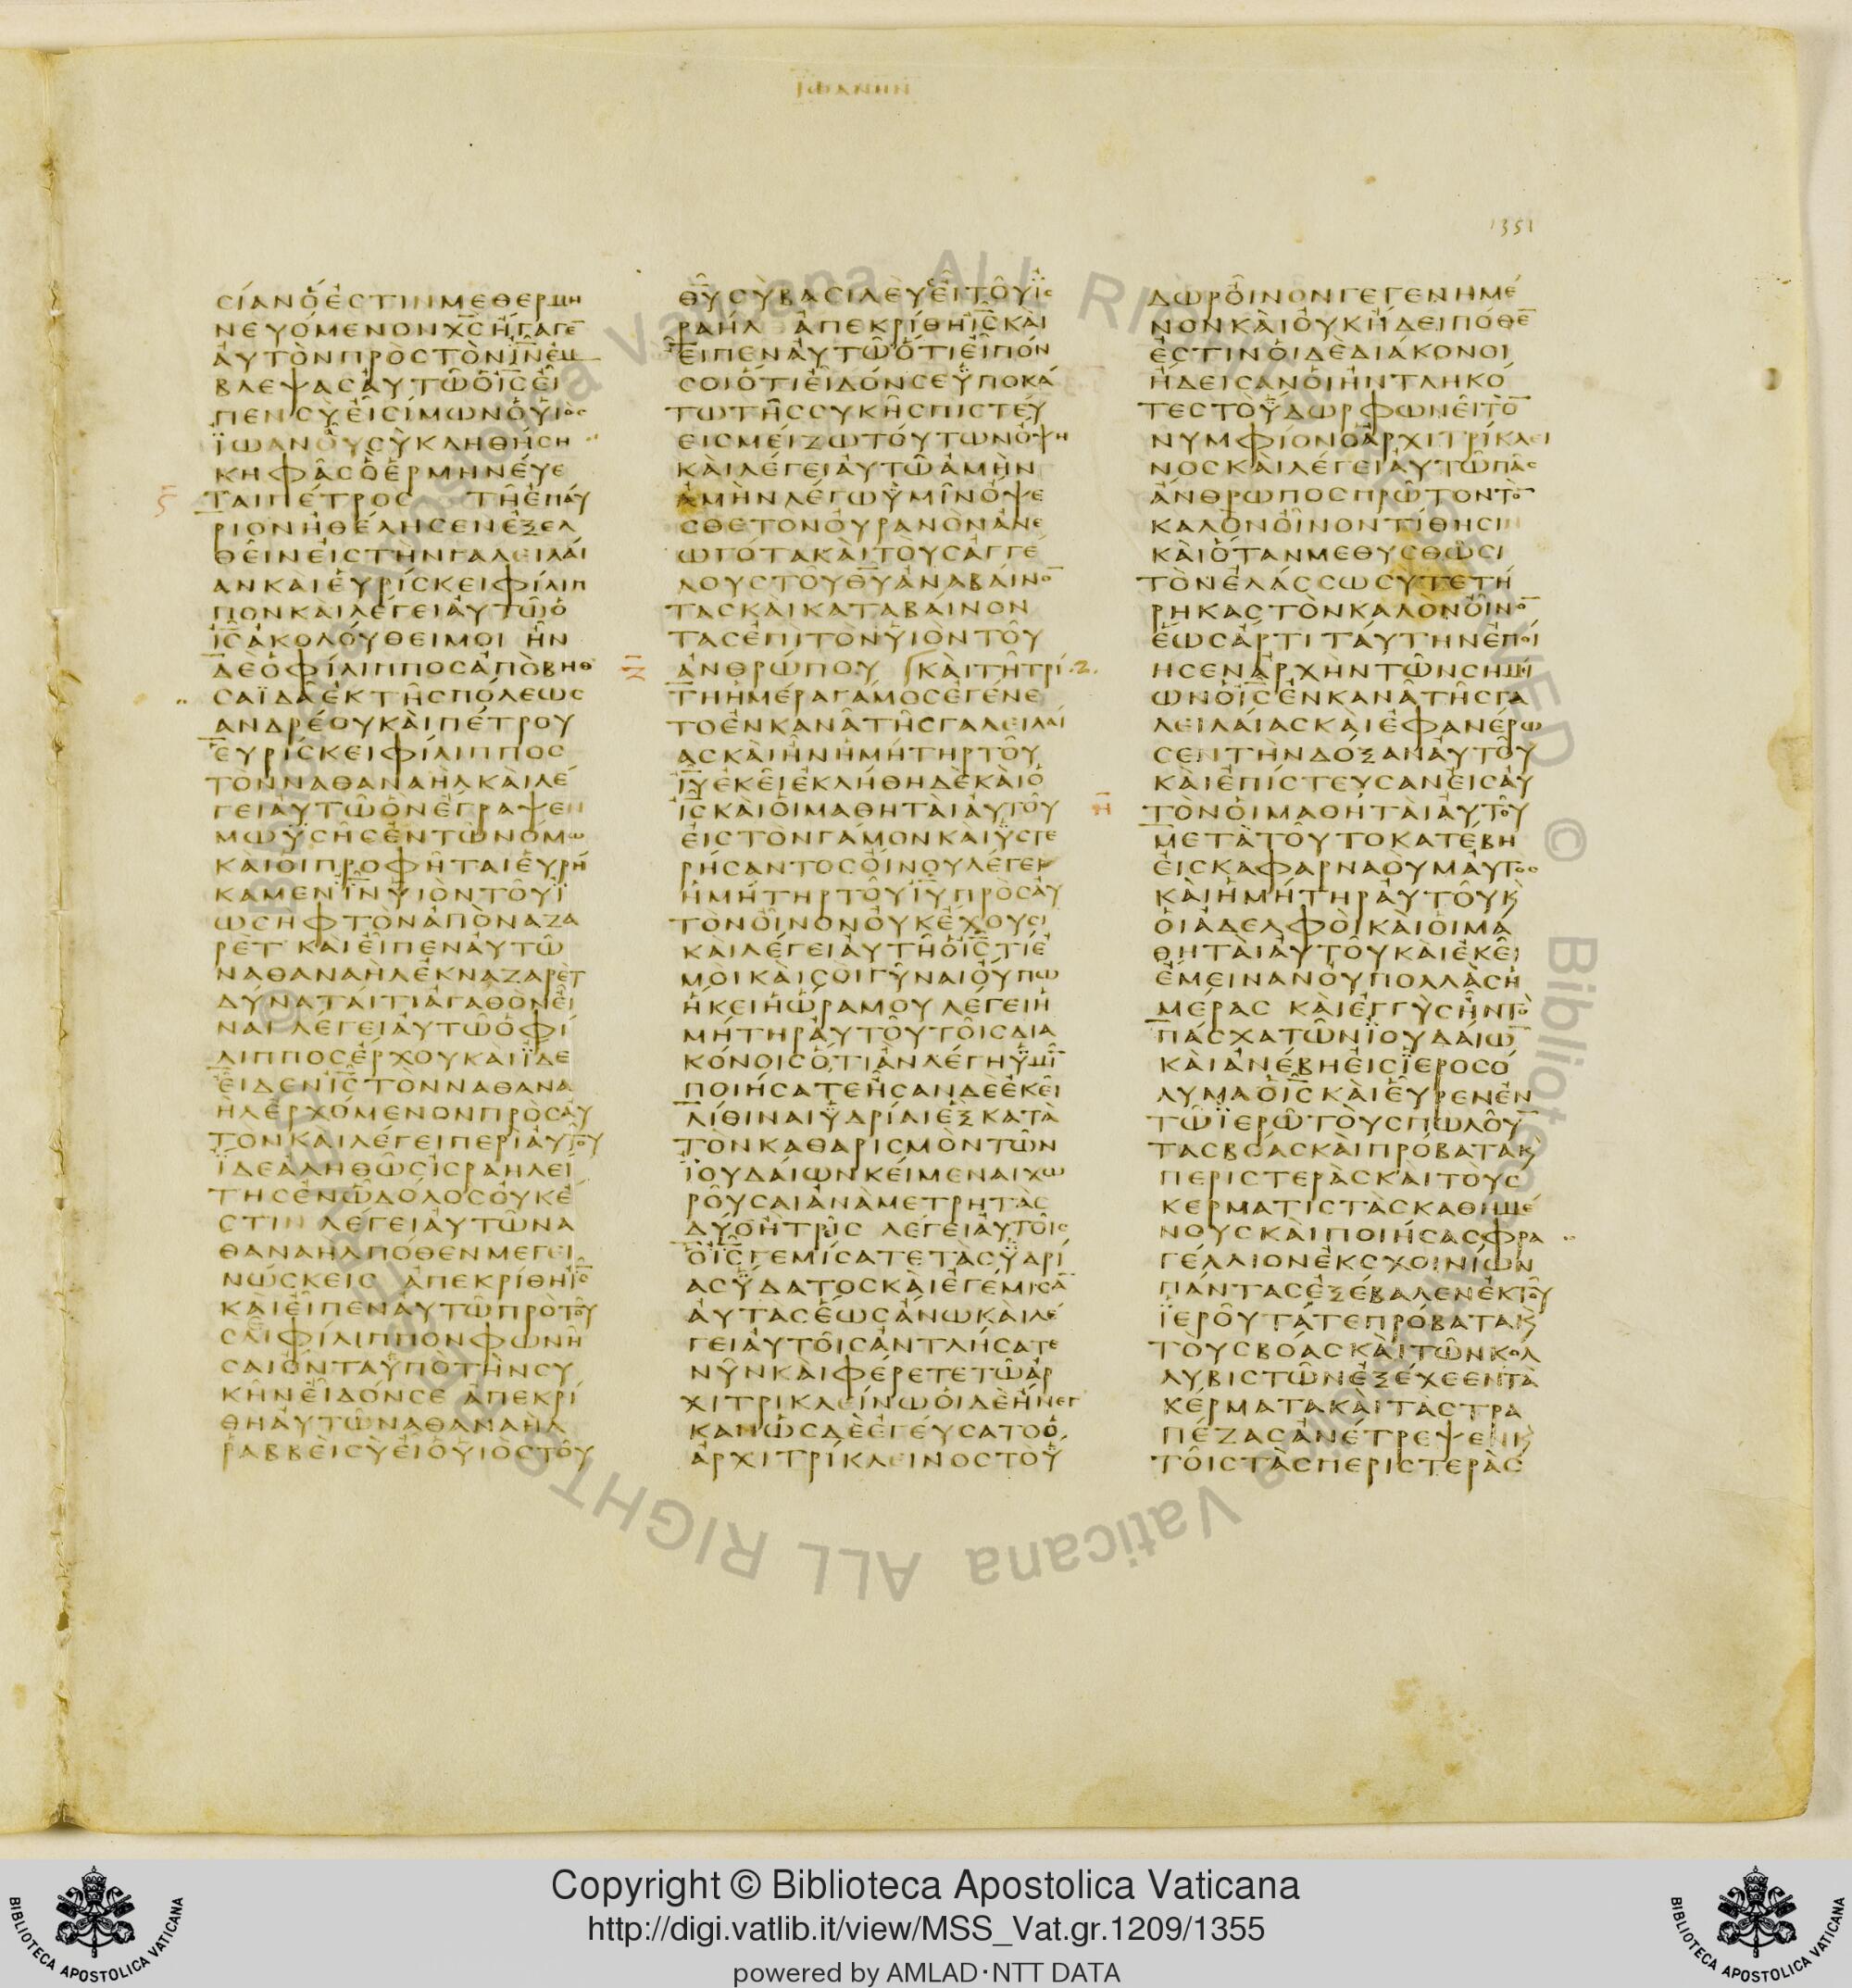 ΙΩΑΝΗΝ
1351
ϹΙΑΝΟΕϹΤΙΝΜΕΘΕΡΜΗ
ΝΕΥΟΜΕΝΟΝΧϹΗΓΑΓΕ̅
ΑΥΤΟΝΠΡΟϹΤΟΝΙΝΕΜ
ΒΛΕΨΑϹΑΥΤΩΟΙϹΕΙ
ΠΕΝϹΥΕΙϹΙΜΩΝΟΥΙΟϹ
ΪΩΑΝΟΥϹΥΚΛΗΘΗϹΗ
ΚΗΦΑϹΟΕΡΜΗΝΕΥΕ
Ϛ ΤΑΙΠΕΤΡΟϹ ΤΗΕΠΑΥ
ΡΙΟΝΗΘΕΛΗϹΕΝΕΞΕΛ
ΘΕΙΝΕΙϹΤΗΝΓΑΛΕΙΛΑΙ
ΑΝΚΑΙΕΥΡΙϹΚΕΙΦΙΛΙΠ
ΠΟΝΚΑΙΛΕΓΕΙΑΥΤΩΟ
ΙϹΑΚΟΛΟΥΘΕΙΜΟΙ ΗΝ
ΔΕΟΦΙΛΙΠΠΟϹΑΠΟΒΗΘ
ϹΑΪΔΑΕΚΤΗϹΠΟΛΕΩϹ
ΑΝΔΡΕΟΥΚΑΙΠΕΤΡΟΥ
ΕΥΡΙϹΚΕΙΦΙΛΙΠΠΟϹ
ΤΟΝΝΑΘΑΝΑΗΛΚΑΙΛΕ
ΓΕΙΑΥΤΩΟΝΕΓΡΑΨΕΝ
ΜΩΫϹΗϹΕΝΤΩΝΟΜΩ
ΚΑΙΟΙΠΡΟΦΗΤΑΙΕΥΡΗ
ΚΑΜΕΝΙΝΥΙΟΝΤΟΥΪ
ΩϹΗΦΤΟΝΑΠΟΝΑΖΑ
ΡΕΤ ΚΑΙΕΙΠΕΝΑΥΤΩ
ΝΑΘΑΝΑΗΛΕΚΝΑΖΑΡΕΤ
ΔΥΝΑΤΑΙΤΙΑΓΑΘΟΝΕΙ
ΝΑΙ ΛΕΓΕΙΑΥΤΩΟΦΙ
ΛΙΠΠΟϹΕΡΧΟΥΚΑΙΪΔΕ
ΕΙΔΕΝΙϹΤΟΝΝΑΘΑΝΑ
ΗΛΕΡΧΟΜΕΝΟΝΠΡΟϹΑΥ
ΤΟΝΚΑΙΛΕΓΕΙΠΕΡΙΑΥΤΟΥ
ΪΔΕΑΛΗΘΩϹΙϹΡΑΗΛΕΙ
ΤΗϹΕΝΩΔΟΛΟϹΟΥΚΕ
ϹΤΙΝ ΛΕΓΕΙΑΥΤΩΝΑ
ΘΑΝΑΗΛΠΟΘΕΝΜΕΓΕΙ
ΝΩϹΚΕΙϹ ΑΠΕΚΡΙΘΗΙϹ
ΚΑΙΕΙΠΕΝΑΥΤΩΠΡΟΤΟΥ
ϹΑΙΦΙΛΙΠΠΟΝΦΩΝΗ
ϹΑΙΟΝΤΑΫΠΟΤΗΝϹΥ
ΚΗΝΕΙΔΟΝϹΕ ΑΠΕΚΡΙ
ΘΗΑΥΤΩΝΑΘΑΝΑΗΛ
ΡΑΒΒΕΙϹΥΕΙΟΥΙΟϹΤΟΥ
ΘΥϹΥΒΑϹΙΛΕΥϹΕΙΤΟΥΪϹ
ΡΑΗΛ ΑΠΕΚΡΙΘΗΙϹΚΑΙ
ΕΙΠΕΝΑΥΤΩΟΤΙΕΙΠΟΝ
ϹΟΙΟΤΙΕΙΔΟΝϹΕΫΠΟΚΑ
ΤΩΤΗϹϹΥΚΗϹΠΙϹΤΕΥ
ΕΙϹΜΕΙΖΩΤΟΥΤΩΝΟΨΗ
ΚΑΙΛΕΓΕΙΑΥΤΩΑΜΗΝ
ΑΜΗΝΛΕΓΩΫΜΙΝΟΨΕ
ϹΘΕΤΟΝΟΥΡΑΝΟΝΑΝΕ
ΩΓΟΤΑΚΑΙΤΟΥϹΑΓΓΕ
ΛΟΥϹΤΟΥΘΥΑΝΑΒΑΙΝΟ̅
ΤΑϹΚΑΙΚΑΤΑΒΑΙΝΟΝ
ΤΑϹΕΠΙΤΟΝΥΙΟΝΤΟΥ
Ζ ΑΝΘΡΩΠΟΥ ΚΑΙΤΗΤΡΙ .2.
ΤΗΗΜΕΡΑΓΑΜΟϹΕΓΕΝΕ
ΤΟΕΝΚΑΝΑΤΗϹΓΑΛΕΙΛΑΙ
ΑϹΚΑΙΗΝΗΜΗΤΗΡΤΟΥ
ΙΥΕΚΕΙΕΚΛΗΘΗΔΕΚΑΙΟ
ΙϹΚΑΙΟΙΜΑΘΗΤΑΙΑΥΤΟΥ
ΕΙϹΤΟΝΓΑΜΟΝΚΑΙΫϹΤΕ
ΡΗϹΑΝΤΟϹΟΙΝΟΥΛΕΓΕΙ
ΗΜΗΤΗΡΤΟΥΙΥΠΡΟϹΑΥ
ΤΟΝΟΙΝΟΝΟΥΚΕΧΟΥϹΙ
ΚΑΙΛΕΓΕΙΑΥΤΗΟΙϹΤΙΕ
ΜΟΙΚΑΙϹΟΙΓΥΝΑΙΟΥΠΩ
ΗΚΕΙΗΩΡΑΜΟΥ ΛΕΓΕΙΗ
ΜΗΤΗΡΑΥΤΟΥΤΟΙϹΔΙΑ
ΚΟΝΟΙϹΟΤΙΑΝΛΕΓΗΫΜΙ̅
ΠΟΙΗϹΑΤΕΗϹΑΝΔΕΕΚΕΙ
ΛΙΘΙΝΑΙΫΔΡΙΑΙΕΞΚΑΤΑ
ΤΟΝΚΑΘΑΡΙϹΜΟΝΤΩΝ
ΪΟΥΔΑΙΩΝΚΕΙΜΕΝΑΙΧΩ
ΡΟΥϹΑΙΑΝΑΜΕΤΡΗΤΑϹ
ΔΥΟΗΤΡΙϹ ΛΕΓΕΙΑΥΤΟΙϹ
ΟΙϹΓΕΜΙϹΑΤΕΤΑϹΫΔΡΙ
ΑϹΫΔΑΤΟϹΚΑΙΕΓΕΜΙϹΑ̅
ΑΥΤΑϹΕΩϹΑΝΩΚΑΙΛΕ
ΓΕΙΑΥΤΟΙϹΑΝΤΛΗϹΑΤΕ
ΝΥΝΚΑΙΦΕΡΕΤΕΤΩΑΡ
ΧΙΤΡΙΚΛΕΙΝΩΟΙΔΕΗΝΕΓ
ΚΑΝΩϹΔΕΕΓΕΥϹΑΤΟΟ
ΑΡΧΙΤΡΙΚΛΕΙΝΟϹΤΟΫ
ΔΩΡΟΙΝΟΝΓΕΓΕΝΗΜΕ
ΝΟΝΚΑΙΟΥΚΗΔΕΙΠΟΘΕ̅
ΕϹΤΙΝΟΙΔΕΔΙΑΚΟΝΟΙ
ΗΔΕΙϹΑΝΟΙΗΝΤΛΗΚΟ
ΤΕϹΤΟΫΔΩΡΦΩΝΕΙΤΟ̅
ΝΥΜΦΙΟΝΟΑΡΧΙΤΡΙΚΛΕΙ
ΝΟϹΚΑΙΛΕΓΕΙΑΥΤΩΠΑϹ
ΑΝΘΡΩΠΟϹΠΡΩΤΟΝΤΟ̅
ΚΑΛΟΝΟΙΝΟΝΤΙΘΗϹΙΝ
ΚΑΙΟΤΑΝΜΕΘΥϹΘΩϹΙ
ΤΟΝΕΛΑϹϹΩϹΥΤΕΤΗ
ΡΗΚΑϹΤΟΝΚΑΛΟΝΟΙΝΟ̅
ΕΩϹΑΡΤΙ ΤΑΥΤΗΝΕΠΟΙ
ΗϹΕΝΑΡΧΗΝΤΩΝϹΗΜΙ
ΩΝΟΙϹΕΝΚΑΝΑΤΗϹΓΑ
ΛΕΙΛΑΙΑϹΚΑΙΕΦΑΝΕΡΩ
ϹΕΝΤΗΝΔΟΞΑΝΑΥΤΟΥ
ΚΑΙΕΠΙϹΤΕΥϹΑΝΕΙϹΑΥ
Η ΤΟΝΟΙΜΑΘΗΤΑΙΑΥΤΟΥ
ΜΕΤΑΤΟΥΤΟΚΑΤΕΒΗ
ΕΙϹΚΑΦΑΡΝΑΟΥΜΑΥΤΟϹ
ΚΑΙΗΜΗΤΗΡΑΥΤΟΥΚ̀
ΟΙΑΔΕΛΦΟΙΚΑΙΟΙΜΑ
ΘΗΤΑΙΑΥΤΟΥΚΑΙΕΚΕΙ
ΕΜΕΙΝΑΝΟΥΠΟΛΛΑϹΗ
ΜΕΡΑϹ ΚΑΙΕΓΓΥϹΗΝΤΟ
ΠΑϹΧΑΤΩΝΪΟΥΔΑΙΩ̅
ΚΑΙΑΝΕΒΗΕΙϹΪΕΡΟϹΟ
ΛΥΜΑΟΙϹΚΑΙΕΥΡΕΝΕΝ
ΤΩΪΕΡΩΤΟΥϹΠΩΛΟΥ̅
ΤΑϹΒΟΑϹΚΑΙΠΡΟΒΑΤΑΚ̀
ΠΕΡΙϹΤΕΡΑϹΚΑΙΤΟΥϹ
ΚΕΡΜΑΤΙϹΤΑϹΚΑΘΗΜΕ
ΝΟΥϹΚΑΙΠΟΙΗϹΑϹΦΡΑ
ΓΕΛΛΙΟΝΕΚϹΧΟΙΝΙΩΝ
ΠΑΝΤΑϹΕΞΕΒΑΛΕΝΕΚΤΟΥ
ΪΕΡΟΥΤΑΤΕΠΡΟΒΑΤΑΚ̀
ΤΟΥϹΒΟΑϹΚΑΙΤΩΝΚΟΛ
ΛΥΒΙϹΤΩΝΕΞΕΧΕΕΝΤΑ
ΚΕΡΜΑΤΑΚΑΙΤΑϹΤΡΑ
ΠΕΖΑϹΑΝΕΤΡΕΨΕΝΚ̀
ΤΟΙϹΤΑϹΠΕΡΙϹΤΕΡΑϹ
© Biblioteca Apostolica Vaticana ALL RIGHTS RESERVED
Copyright © Biblioteca Apostolica Vaticana
http://digi.vatlib.it/view/MSS_Vat.gr.1209/1355
powered by AMLAD·NTT DATA
BIBLIOTECA APOSTOLICA VATICANA
BIBLIOTECA APOSTOLICA VATICANA